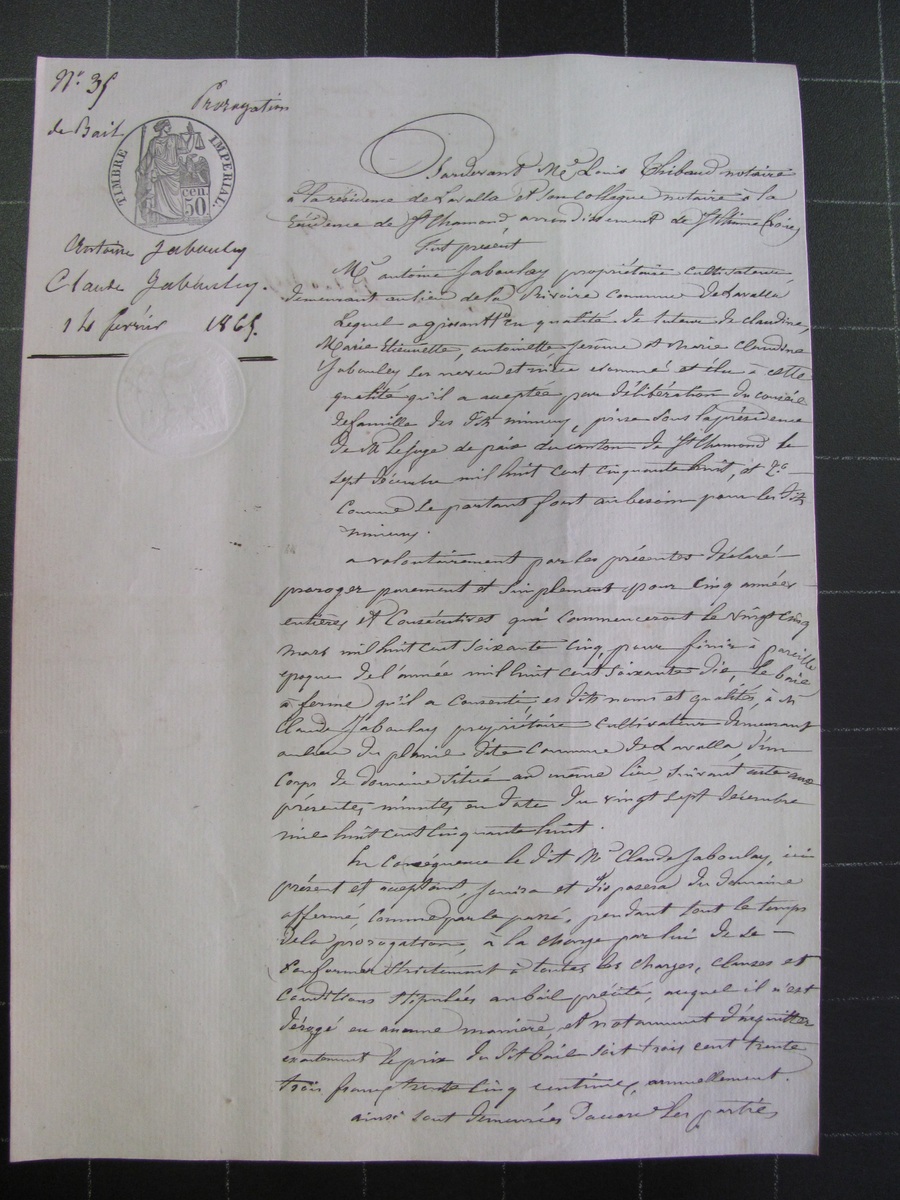 N° 35
Prorogation
de Bail
TIMBRE IMPERIAL
50 cen.
Antoine Jaboulay
Claude Jaboulay.
14 février 1865.
Pardevant Me Louis Thibaud notaire
à la résidence de Lavalla et son collègue notaire à la
résidence de St Chamond, arrondissement de St Etienne (Loire)
Fut présent
Mr antoine Jaboulay propriétaire cultivateur
demeurant au lieu de la Rivoire commune de Lavalla
Lequel agissant en qualité de tuteur de claudine,
Marie Etiennette, antoinette, Jérôme et Marie Claudine
Jaboulay ses neveu et nièces nommé et élu à cette
qualité qu'il a acceptée par délibération du conseil
de famille des dits mineurs, prise sous la présidence
de Mr Le Juge de paix du canton de St Chamond le
sept Décembre mil huit cent cinquante huit, et
comme se portant fort au besoin pour les dits
mineurs.
a volontairement par les présentes déclaré
proroger purement et simplement pour cinq années
entières et consécutives qui commenceront le vingt cinq
mars mil huit cent soixante cinq, pour finir à pareille
époque de l'année mil huit cent soixante dix, le bail
à ferme qu'il a consenti, es dits noms et qualités, à Mr
Claude Jaboulay propriétaire cultivateur demeurant
au lieu du planil dite commune de Lavalla, d'un
corps de domaine situé au même lieu suivant acte aux
présentes minutes en date du vingt sept décembre
mil huit cent cinquante huit.
En conséquence le dit Mr Claude Jaboulay, ici
présent et acceptant, jouira et disposera du domaine
affermé, comme par le passé, pendant tout le temps
de la prorogation, à la charge par lui de se
conformer strictement à toutes les charges, clauses et
conditions stipulées au bail précité, auquel il n'est
dérogé en aucune manière et notamment d'acquitter
exactement le prix du dit bail soit trois cent trente
trois francs trente cinq centimes, annuellement.
ainsi sont demeurées d'accord les parties